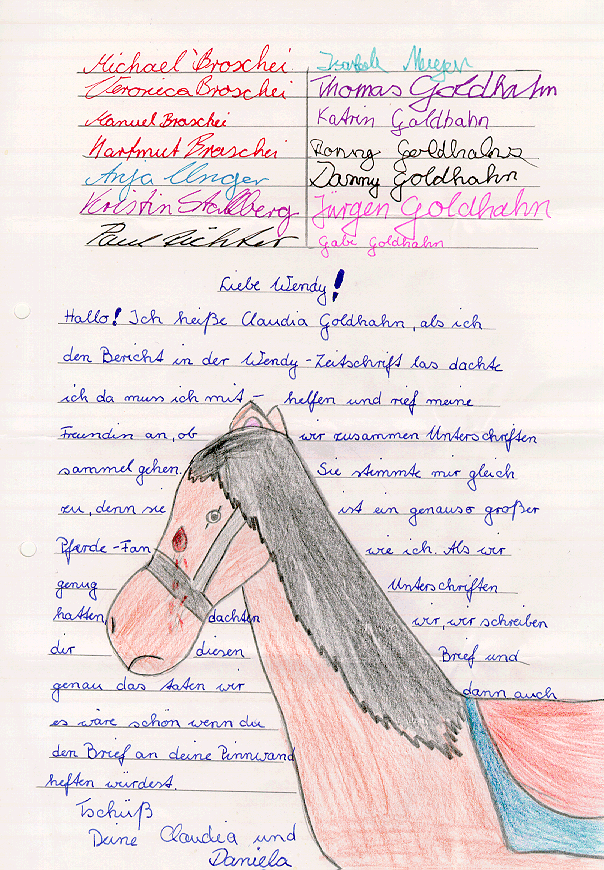 Michael Broschei
Veronica Broschei
Manuel Broschei
Hartmut Broschei
Anja Unger
Kristin Stallberg
Paul Richter
Meyer
Thomas Goldhahn
Katrin Goldhahn
Ronny Goldhahn
Danny Goldhahn
Jürgen Goldhahn
Gabi Goldhahn
Liebe Wendy!
Hallo! Ich heiße Claudia Goldhahn, als ich
den Bericht in der Wendy-Zeitschrift las dachte
ich da muss ich mit- helfen und rief meine
Freundin an, ob wir zusammen Unterschriften
sammel gehen. Sie stimmte mir gleich
zu, denn sie ist ein genauso großer
Pferde-Fan wie ich. Als wir
genug Unterschriften
hatten, dachten wir, wir schreiben
dir diesen Brief und
genau das taten wir dann auch
es wäre schön wenn du
den Brief an deine Pinnwand
heften würdest.
Tschüß
Deine Claudia und
Daniela